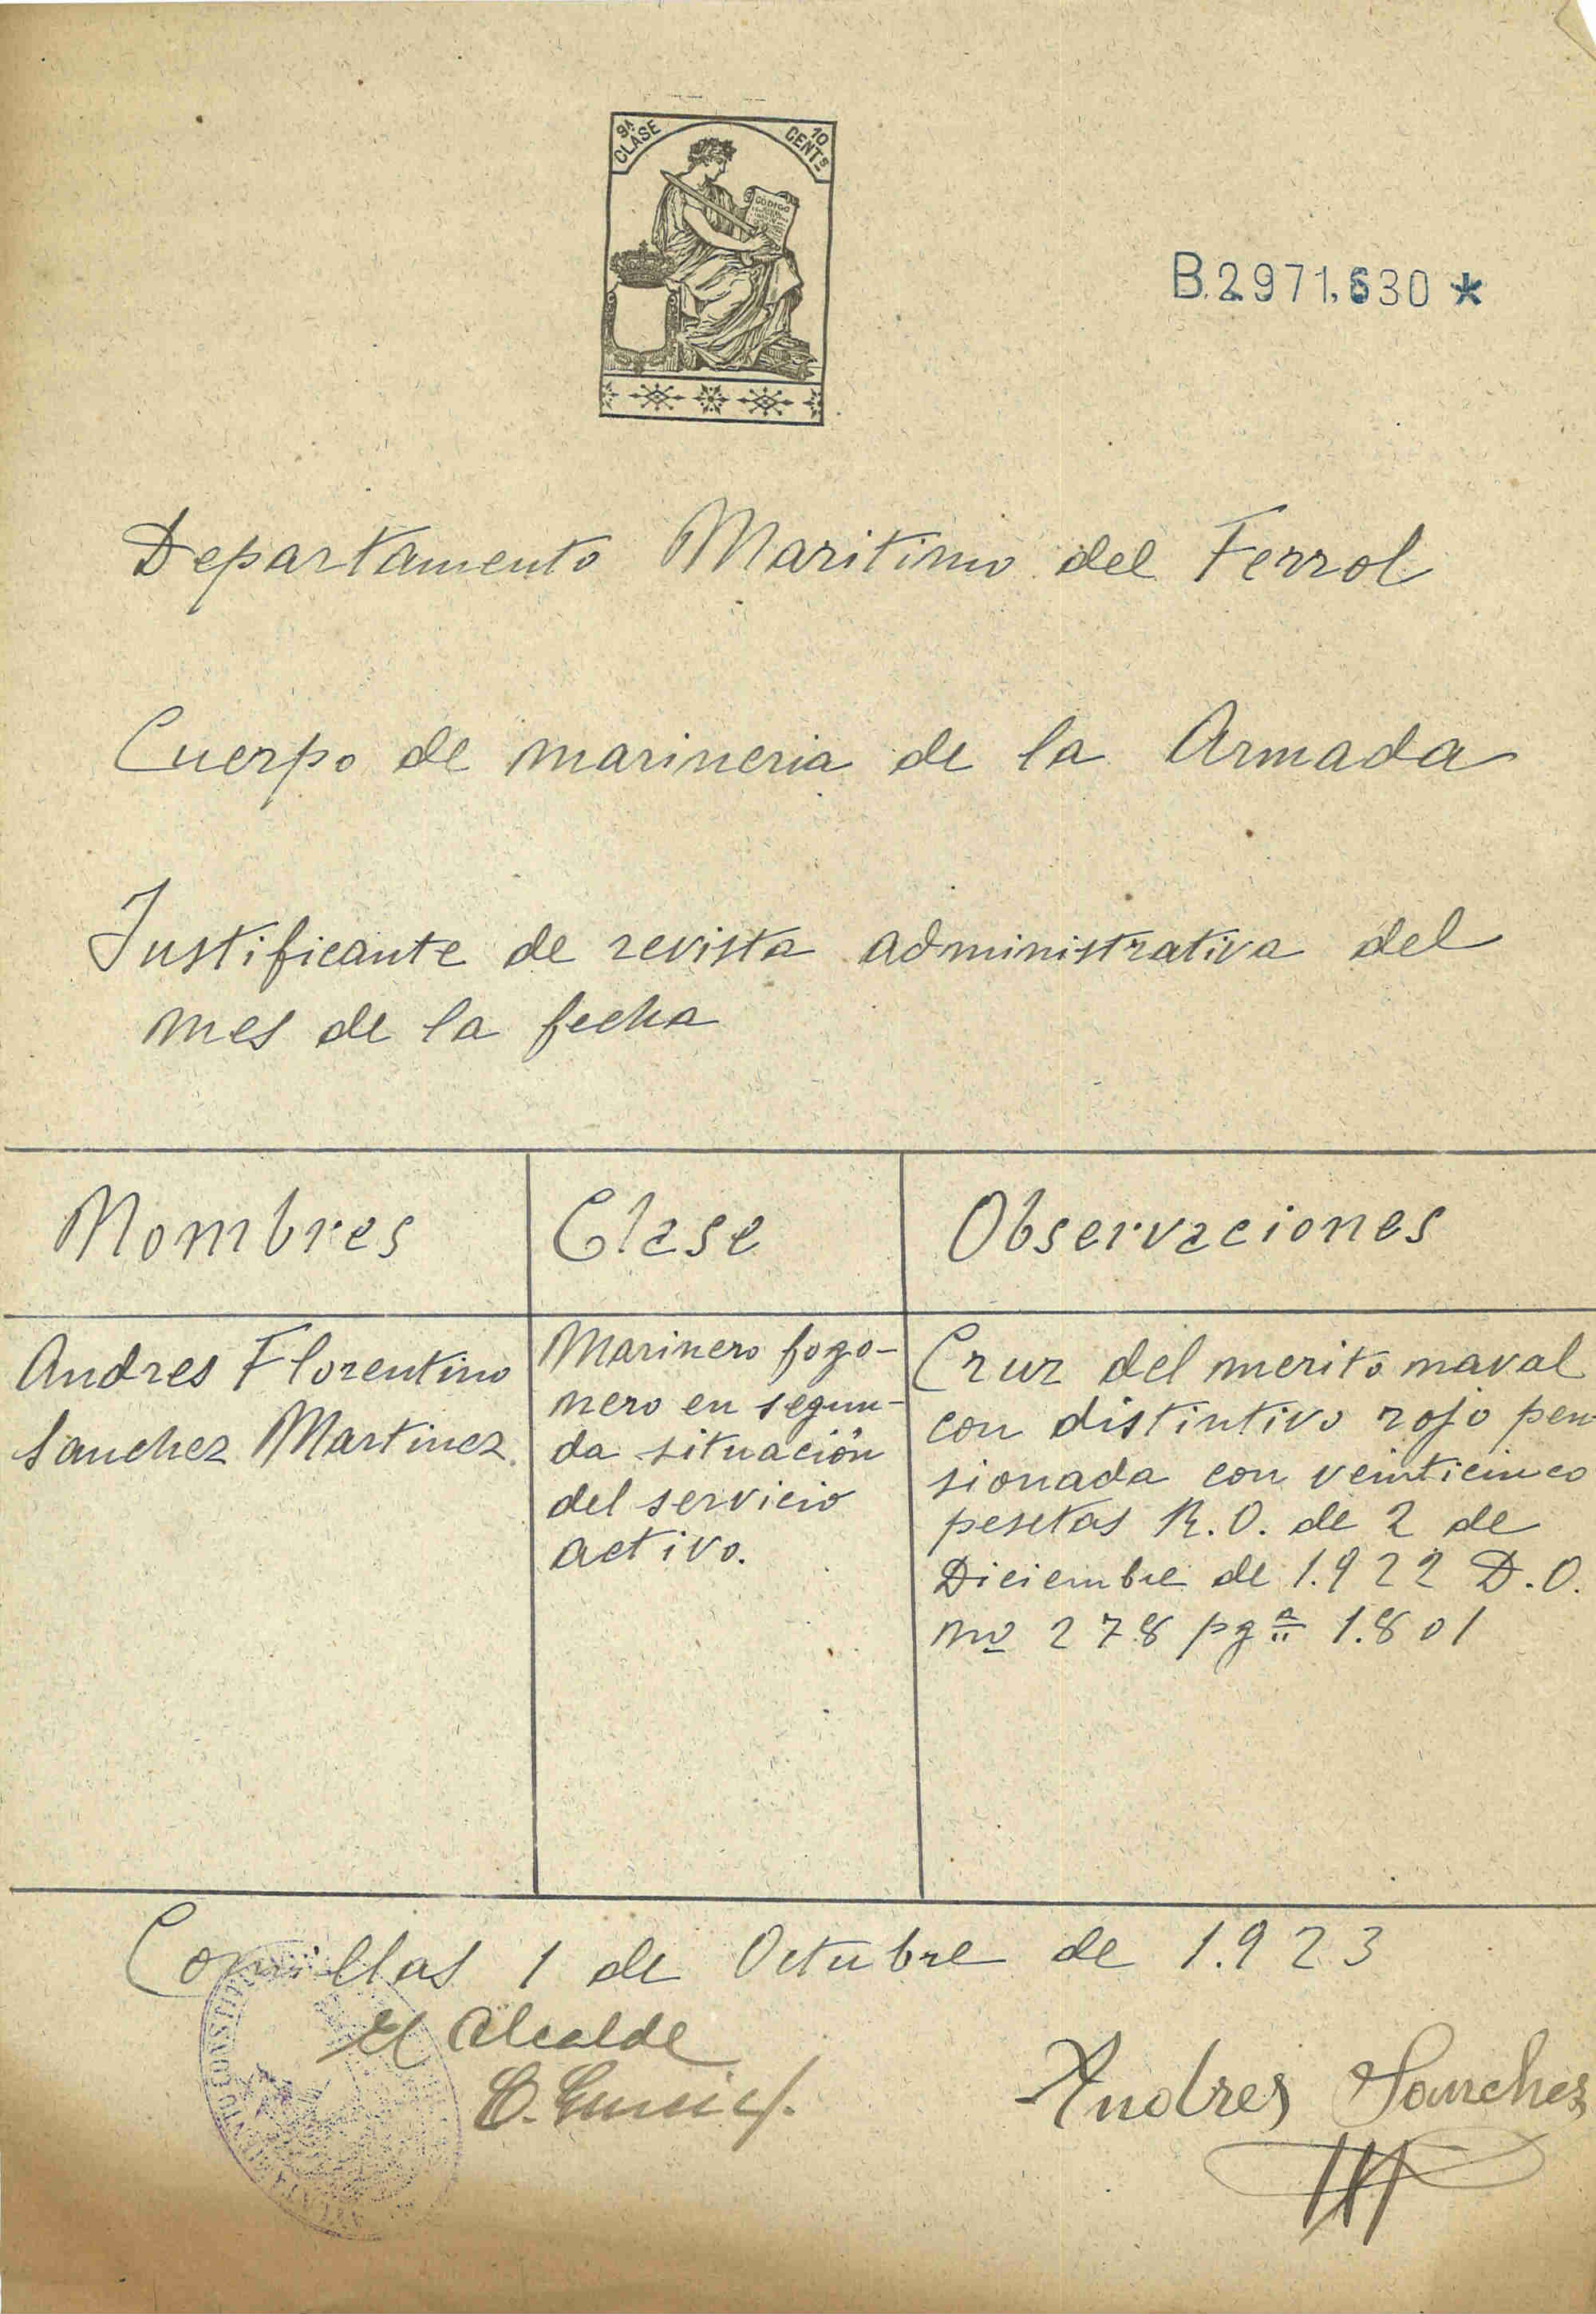 9ª CLASE
10 CENTs
CODIGO
B.2971.630 *
Departamento Maritimo del Ferrol
Cuerpo de marineria de la Armada
Justificante de revista administrativa del
mes de la fecha
Nombres
Clase
Observaciones
Andres Florentino
Sanchez Martinez.
Marinero fogo-
nero en segun-
da situación
del servicio
activo.
Cruz del merito naval
con distintivo rojo pen
sionada con veinticinco
pesetas R.O. de 2 de
Diciembre de 1.922 D.O.
nº 278 pgª 1.801
Comillas 1 de Octubre de 1.923
El Alcalde
Andres Sanchez